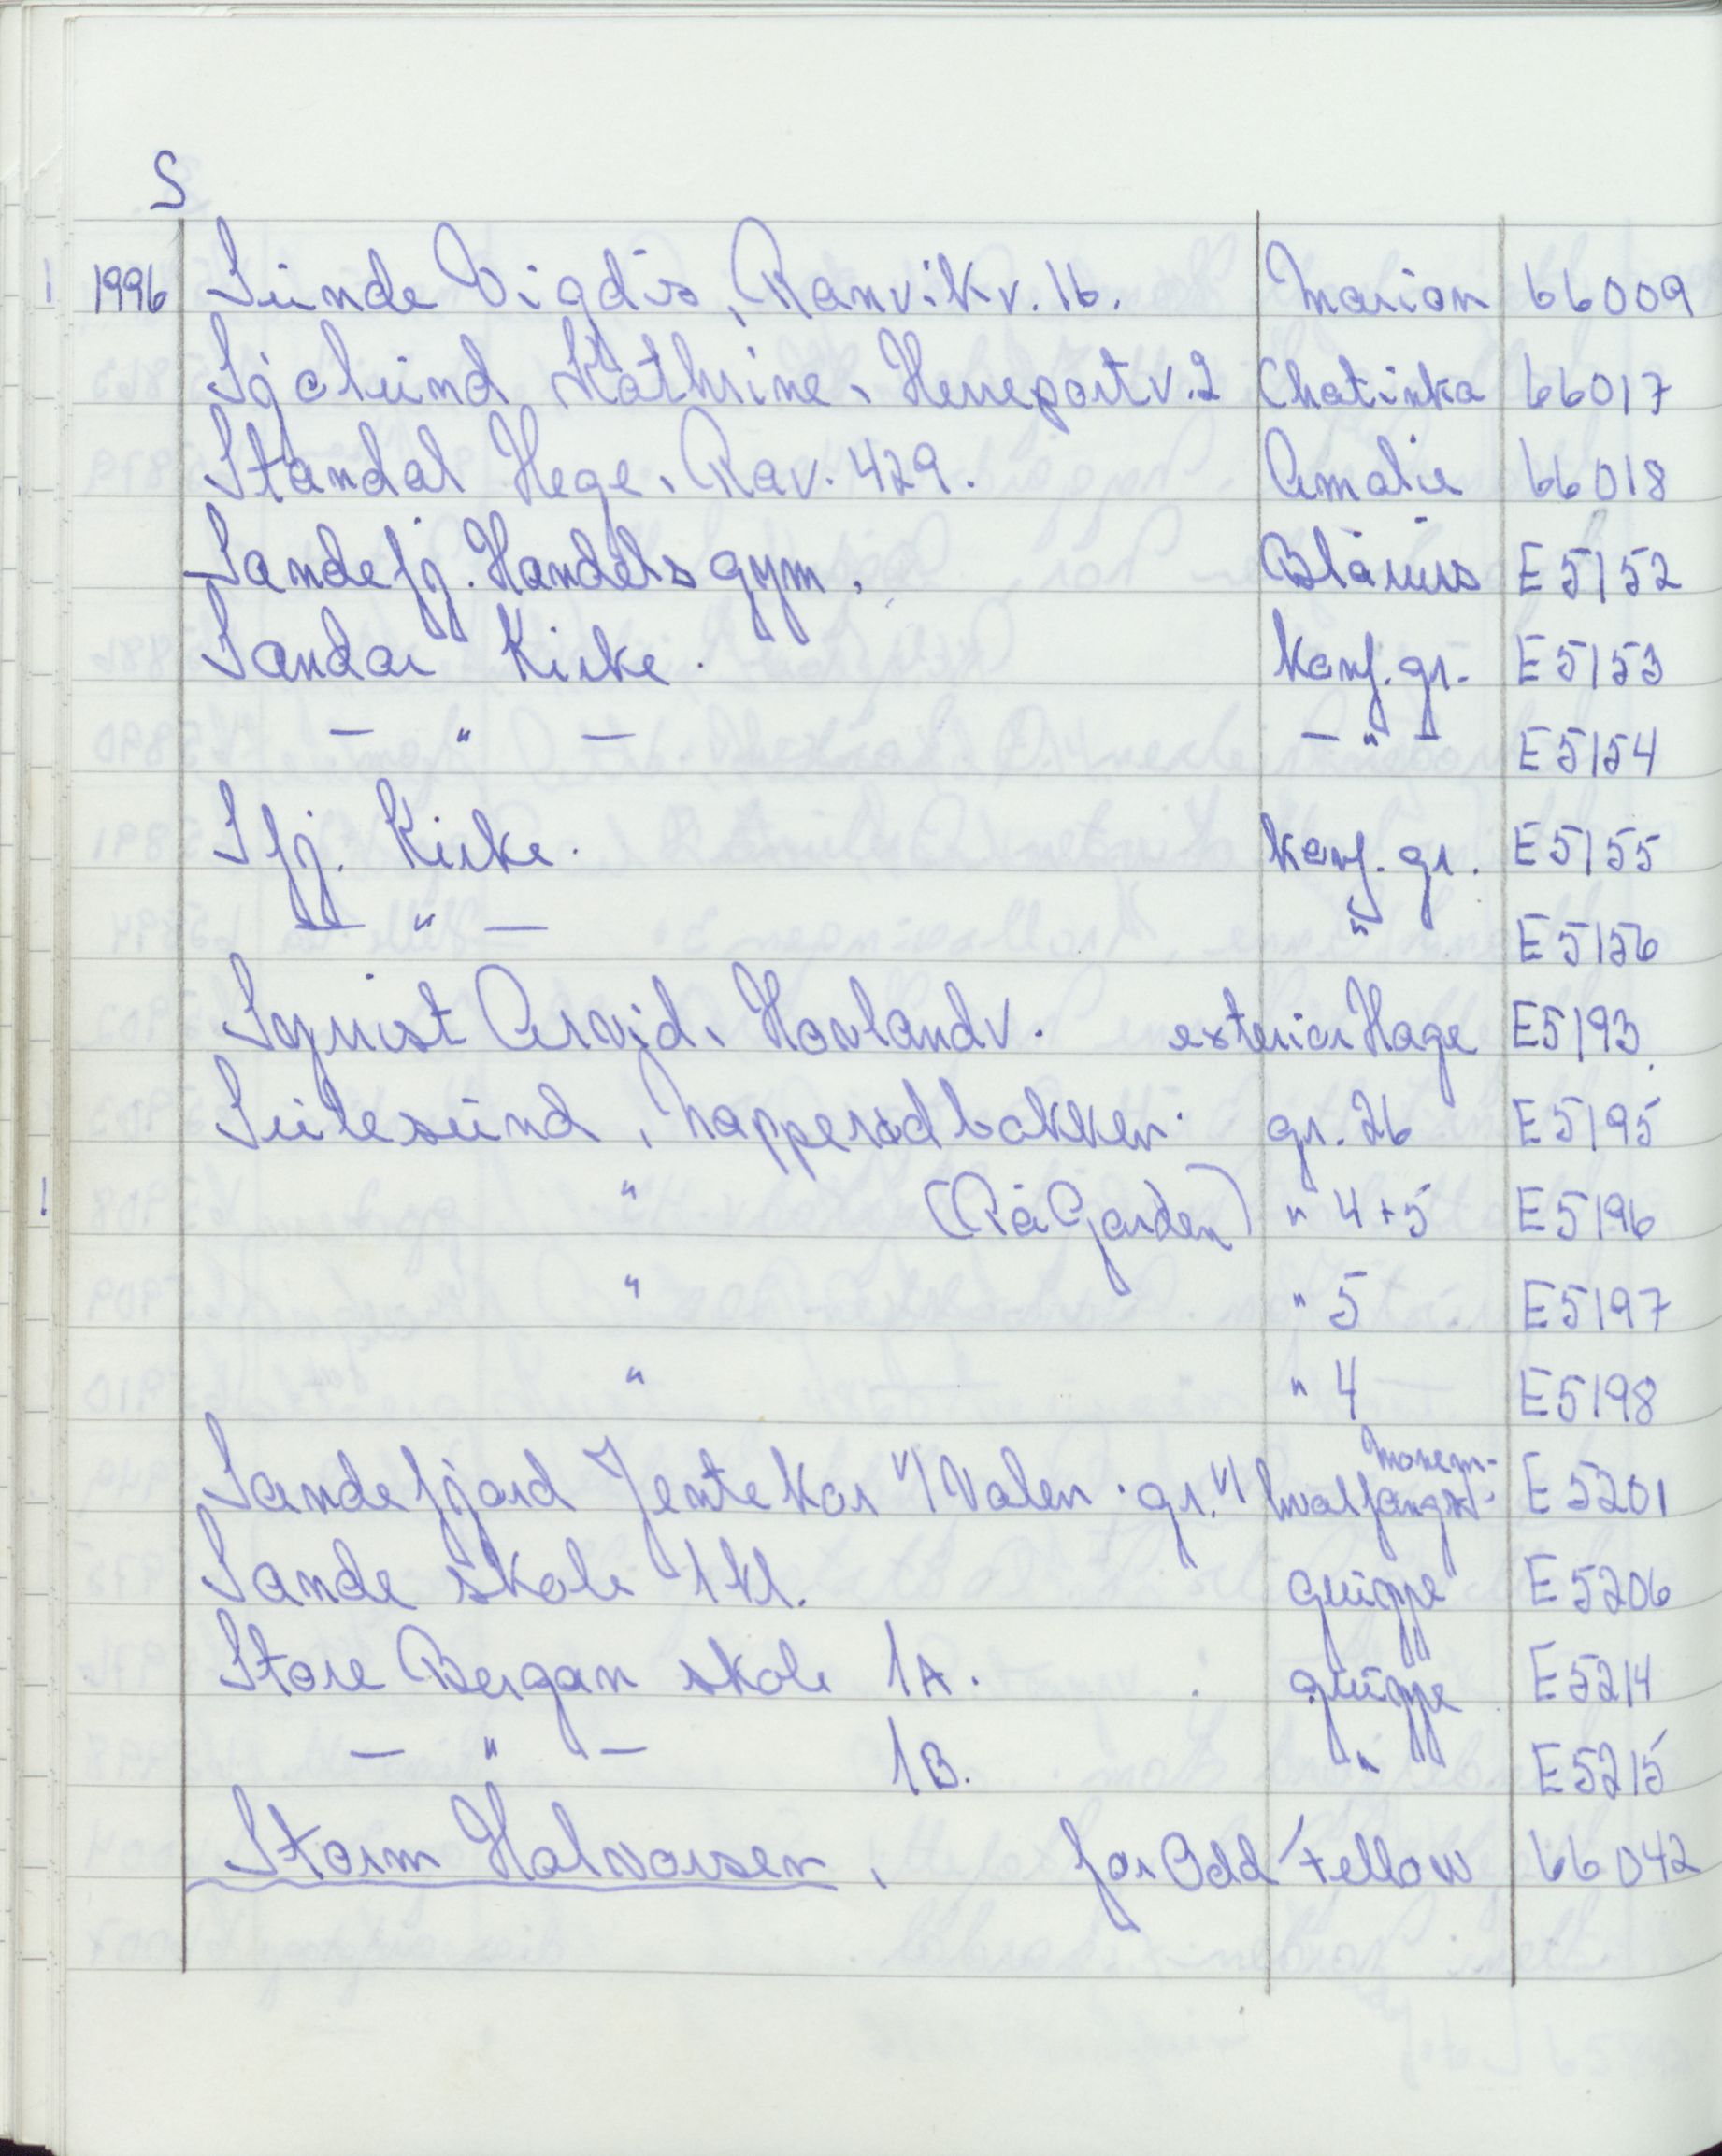 S
1996 Sunde Vigdis, Ranvikv. 16. Marion 66009
Sjølund Kathrine, Herreportv. 2 Chatinka 66017
Standal Hege, Rav. 429. Amalie 66018
Sandefj. Handelsgym. Blåruss E5152
Sandar Kirke. Konf. gr. E5153
— " — — " — E5154
Sfj. Kirke. Konf. gr. E5155
— " — " E5156
Syrrist Arvid, Hovlandv. exteriør Hage E5193
Sulesund, Napperødbakken. gr. 26 E5195
" (Rå Garden) " 4+5 E5196
" " 5 E5197
" " 4 E5198
Sandefjord Jentekor v/ Valen. gr. v/ hvalfangst- monem- E5201
Sande skole 1 kl. gruppe E5206
Store Bergan skole 1A. gruppe E5214
— " — 1B. " E5215
Storm Halvorsen, for Odd Fellow 66042